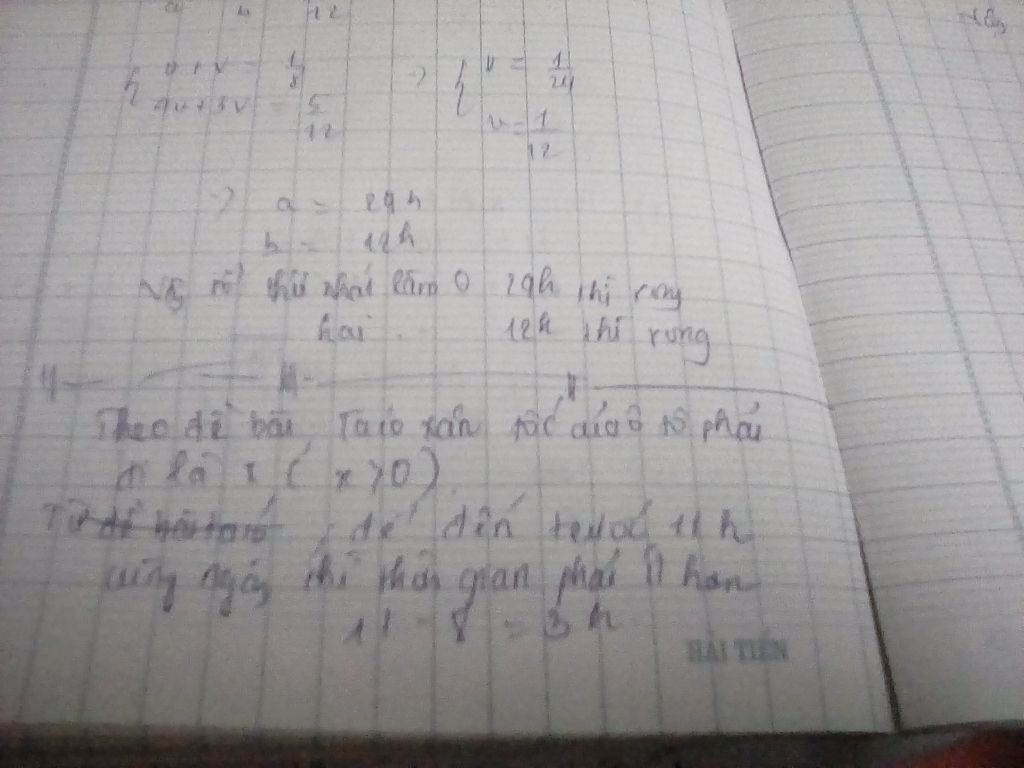 12
u + v = 1/8 → { u = 1/24
9u + 3v = 5/12
v = 1/12
→ a = 24h
b = 12h
Vậy tổ thứ nhất làm 24h thì xong
hai 12h thì xong
Theo đề bài, Ta có vận tốc của ô tô phải
đi là x ( x > 0 )
Từ đề bài ta có , để đến trước 11h
cùng ngày thì thời gian phải ít hơn
11 - 8 = 3h
HẢI TIẾN